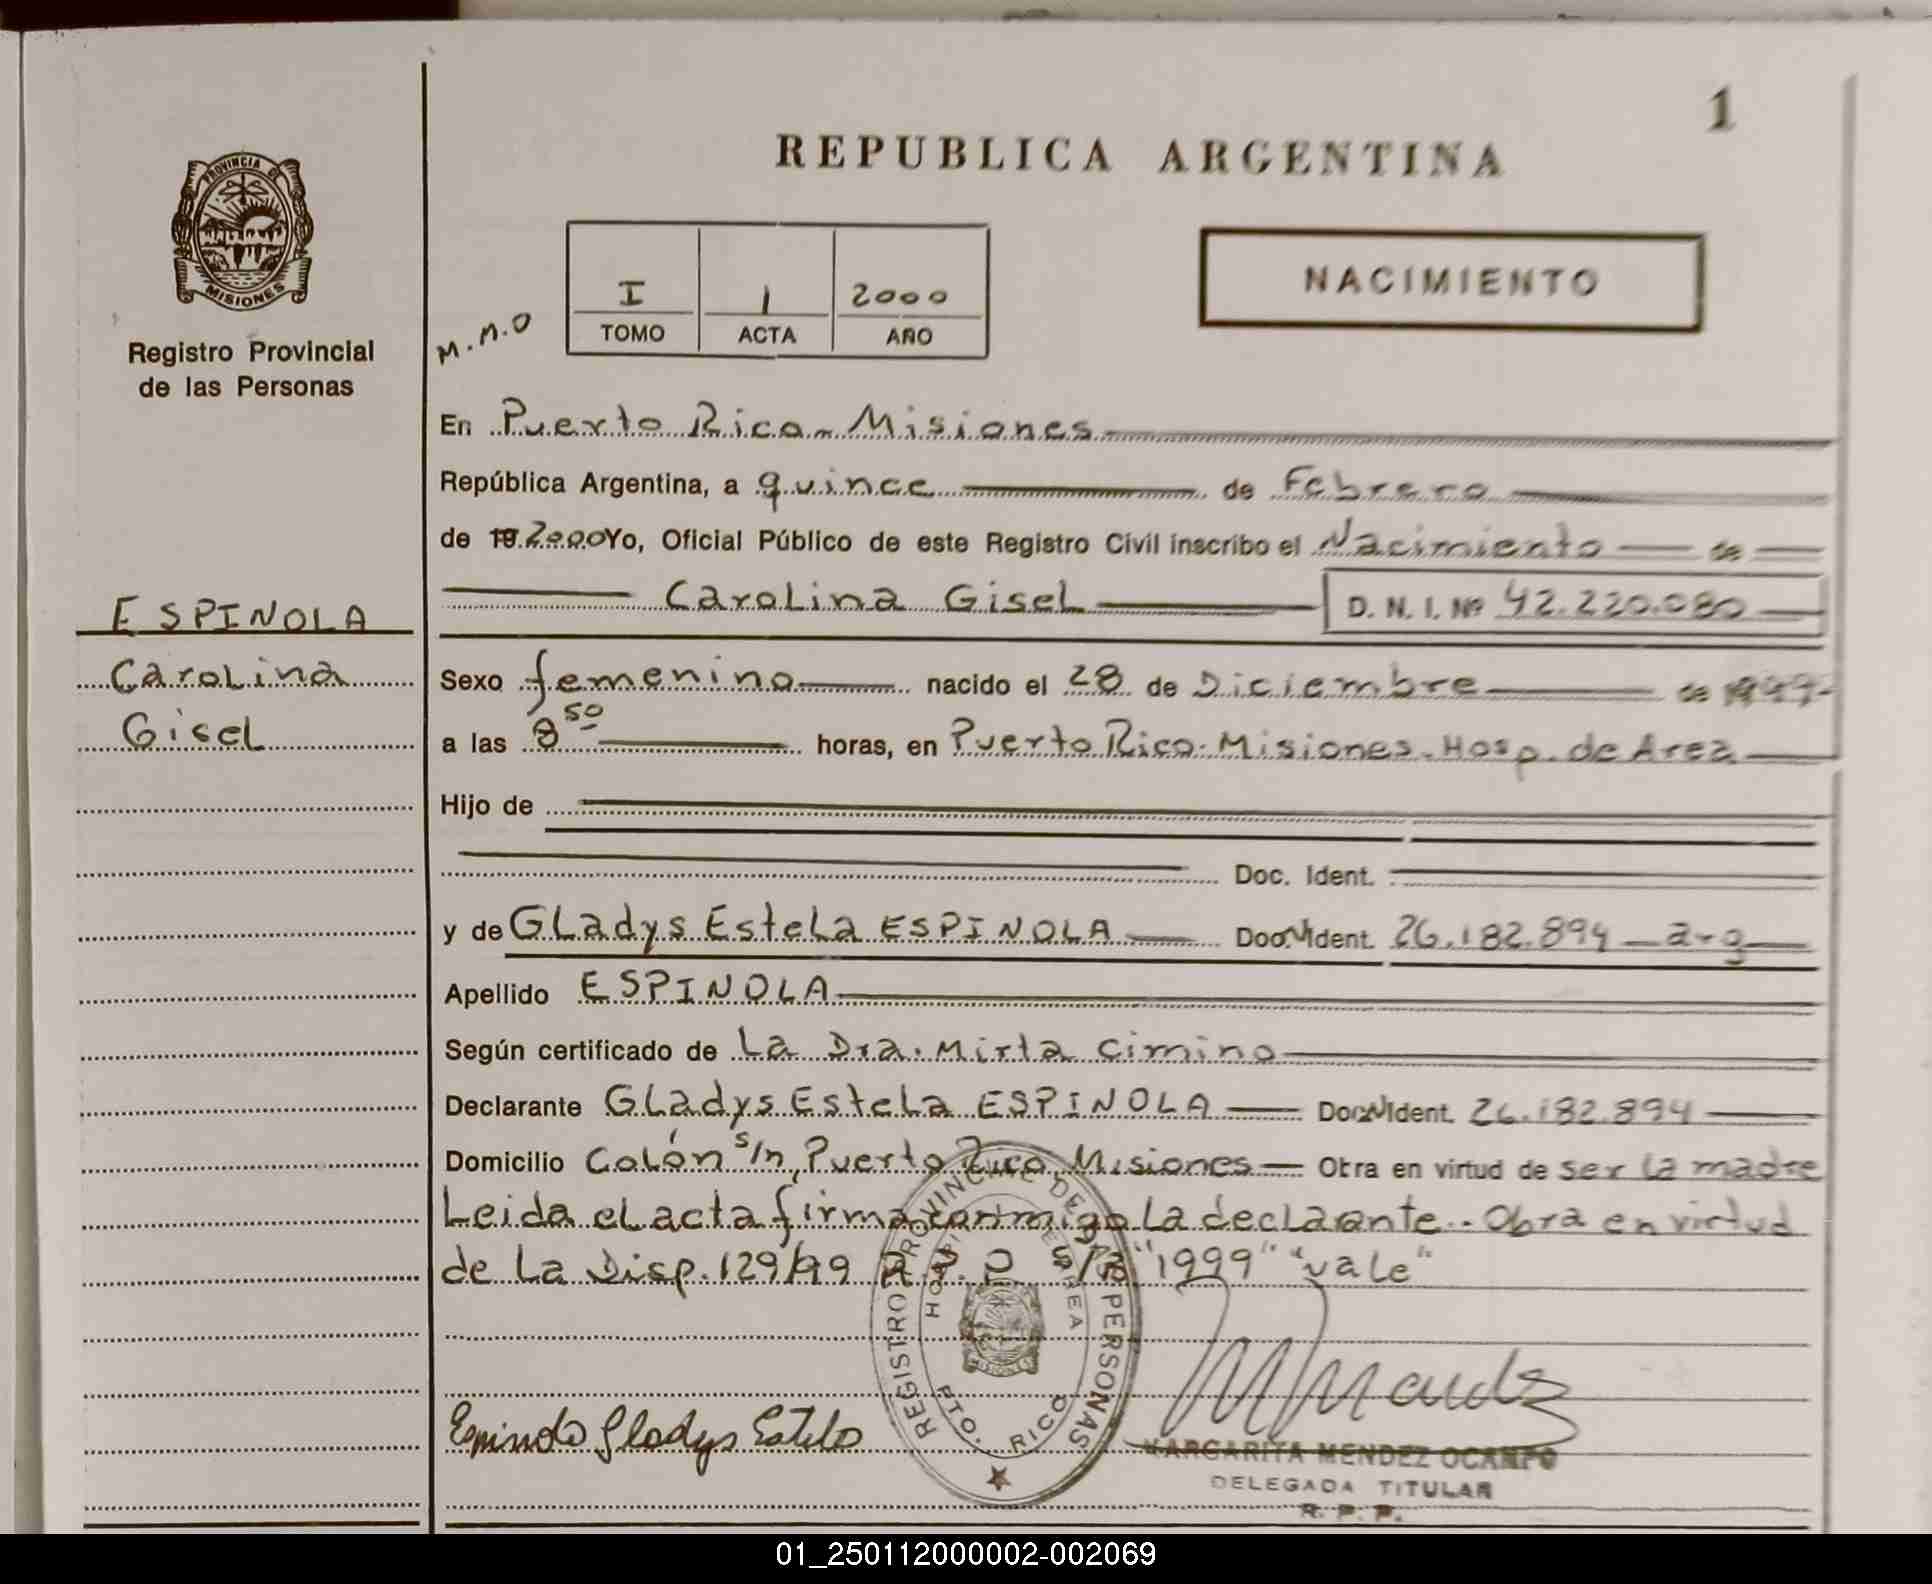 1
REPUBLICA ARGENTINA
PROVINCIA DE
MISIONES
Registro Provincial
de las Personas
NACIMIENTO
I 1 2000
TOMO ACTA AÑO
M.M.O
En Puerto Rico - Misiones
República Argentina, a quince de Febrero
de 19 2000 Yo, Oficial Público de este Registro Civil inscribo el Nacimiento de
Carolina Gisel D. N. I. Nº 42.220.080
ESPINOLA
Carolina
Gisel
Sexo femenino nacido el 28 de Diciembre de 1999-
a las 8 50 horas, en Puerto Rico. Misiones. Hosp. de Area
Hijo de
Doc. Ident.
y de Gladys Estela ESPINOLA Doc. Ident. 26.182.894 arg
Apellido ESPINOLA
Según certificado de La Dra. Mirta Cimino
Declarante Gladys Estela ESPINOLA Doc. Ident. 26.182.894
Domicilio Colón s/n, Puerto Rico, Misiones Obra en virtud de ser la madre
Leida el acta firma conmigo La declarante. Obra en virtud
de La Disp. 129/99 R.P.P. S/R "1999" "vale"
REGISTRO PROVINCIAL DE LAS PERSONAS
HOSPITAL DE AREA
PTO. RICO
MISIONES
Espinola Gladys Estela
MMendez
MARGARITA MENDEZ OCAMPO
DELEGADA TITULAR
R. P. P.
01_250112000002-002069